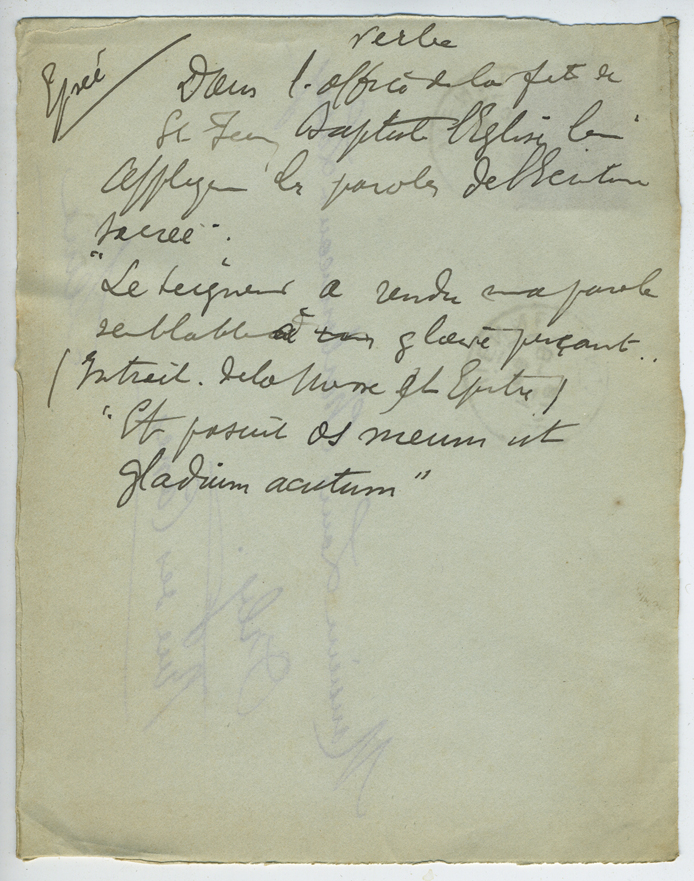 Verbe
Epée
Dans l'office de la fete de
St Jean Baptiste l'Eglise lui
applique les paroles de l'Ecriture
sacree.
"Le Seigneur a rendu ma parole
semblable à un glaive perçant..
(Extrait. de la Messe St Epitre)
"Et posuit os meum ut
gladium acutum"
Monsieur